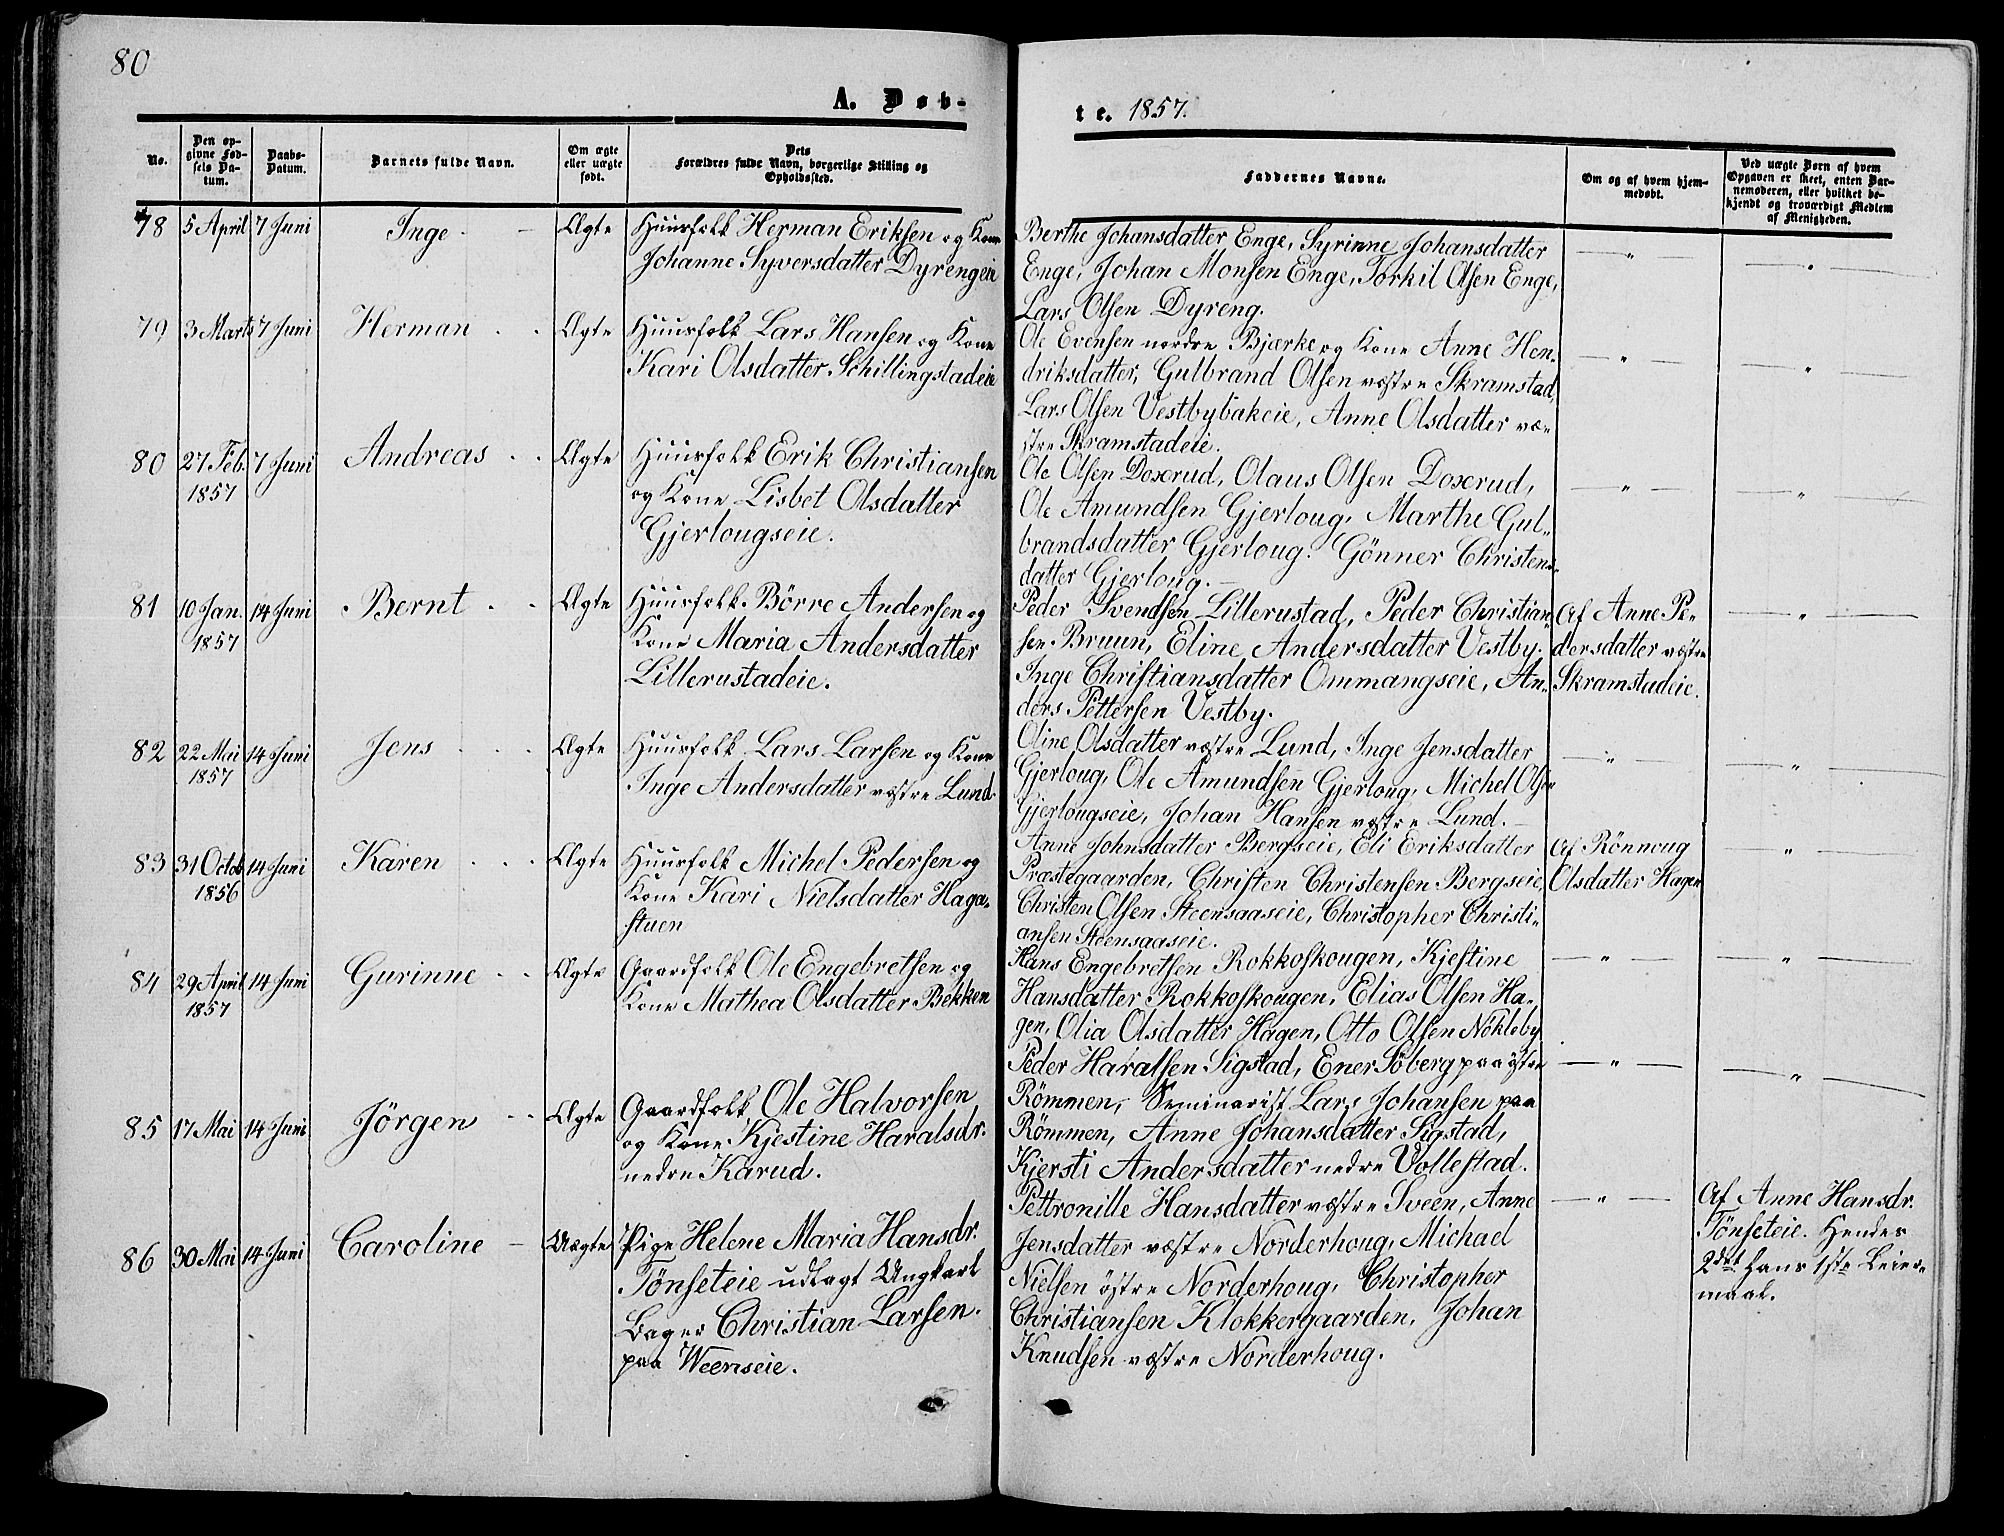 80
A. Døb-
te. 1857.
No.
Den op-
givne Fød-
sels Da-
tum.
Daabs-
Datum.
Barnets fulde Navn.
Om ægte
eller uægte
født.
Dets
Forældres fulde Navn, borgerlige Stilling og
Opholdssted.
Faddernes Navne.
Om og af hvem hjem-
medøbt.
Ved uægte Børn af hvem
Opgaven er skeet, enten Bar-
nemoderen, eller hvilket be-
kjendt og troværdigt Medlem
af Menigheden.
78 5 April 7 Juni Inge Ægte
Huusfolk Herman Eriksen og Kone
Johanne Syversdatter Dyrengeie
Berthe Johansdatter Enge, Syrinne Johansdatter
Enge, Johan Monsen Enge, Torkil Olsen Enge,
Lars Olsen Dyreng.
— " —
— " —
79 3 Marts 7 Juni Herman Ægte
Huusfolk Lars Hansen og Kone
Kari Olsdatter Schillingstadeie
Ole Evensen nordre Bjærke og Kone Anne Hen-
driksdatter, Gulbrand Olsen væstre Skramstad,
Lars Olsen Vestbybakeie, Anne Olsdatter væ-
stre Skramstadeie.
— " —
— " —
80 27 Feb. 7 Juni Andreas Ægte
1857
Huusfolk Erik Christiansen
og Kone Lisbet Olsdatter
Gjerlougseie.
Ole Olsen Doxrud, Olaus Olsen Doxrud,
Ole Amundsen Gjerloug, Marthe Gul-
brandsdatter Gjerloug. Gönner Christens-
datter Gjerloug. —
— " —
— " —
81 10 Jan. 14 Juni Bernt Ægte
1857
Huusfolk Börre Andersen og
Kone Maria Andersdatter
Lillerustadeie.
Peder Svendsen Lillerustad, Peder Christian-
sen Bruun, Eline Andersdatter Vestby.
Inge Christiansdatter Ommangseie, An-
ders Pettersen Vestby.
Af Anne Pe-
dersdatter væstre
Skramstadeie.
— " —
82 22 Mai 14 Juni Jens Ægte
1857
Huusfolk Lars Larsen og Kone
Inge Andersdatter væstre Lund.
Oline Olsdatter væstre Lund, Inge Jensdatter
Gjerloug, Ole Amundsen Gjerloug, Michel Olsen
Gjerlougseie, Johan Hansen væstre Lund. —
— " —
— " —
83 31 Octob 14 Juni Karen Ægte
1856
Huusfolk Michel Pedersen og
Kone Kari Nielsdatter Haga-
stuen
Anne Johnsdatter Bergseie, Eli Eriksdatter
Præstegaarden, Christen Christensen Bergseie,
Christen Olsen Steensaaseie, Christopher Christi-
ansen Steensaaseie.
Af Rönnoug
Olsdatter Hagen
— " —
84 29 April 14 Juni Gurinne Ægte
1857
Gaardfolk Ole Engebretsen og
Kone Mathea Olsdatter Bekken
Hans Engebretsen Rokkoskougen, Kjestine
Hansdatter Rokkoskougen, Elias Olsen Ha-
gen, Olia Olsdatter Hagen, Otto Olsen Nökleby.
— " —
— " —
85 17 Mai 14 Juni Jörgen Ægte
Gaardfolk Ole Halvorsen
og Kone Kjestine Haralsdr.
nedre Karud.
Peder Haralsen Sigstad, Ener Söberg paa östre
Römmen, Seminarist Lars Johansen paa
Römmen, Anne Johansdatter Sigstad,
Kjersti Andersdatter nedre Vollestad.
— " —
— " —
86 30 Mai 14 Juni Caroline — Uægte
Pige Helene Maria Hansdr.
Tönseteie udlagt Ungkarl
Bager Christian Larsen.
paa Weenseie.
Pettronille Hansdatter væstre Sveen, Anne
Jensdatter væstre Norderhoug, Michael
Nielsen östre Norderhoug, Christopher
Christiansen Klokkergaarden, Johan
Knudsen væstre Norderhoug.
— " —
Af Anne Hansdr.
Tönseteie. Hendes
2det hans 1ste Leier-
maal.